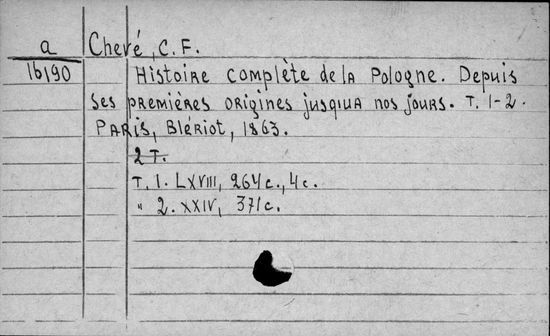 a Chevé, C.F.
16190 Histoire complète de la Pologne. Depuis
ses premières origines jusqiua nos jours. T. 1-2.
Paris, Blériot, 1863.
2 T.
T. 1. LXVIII, 264c., 4c.
" 2. XXIV, 371c.